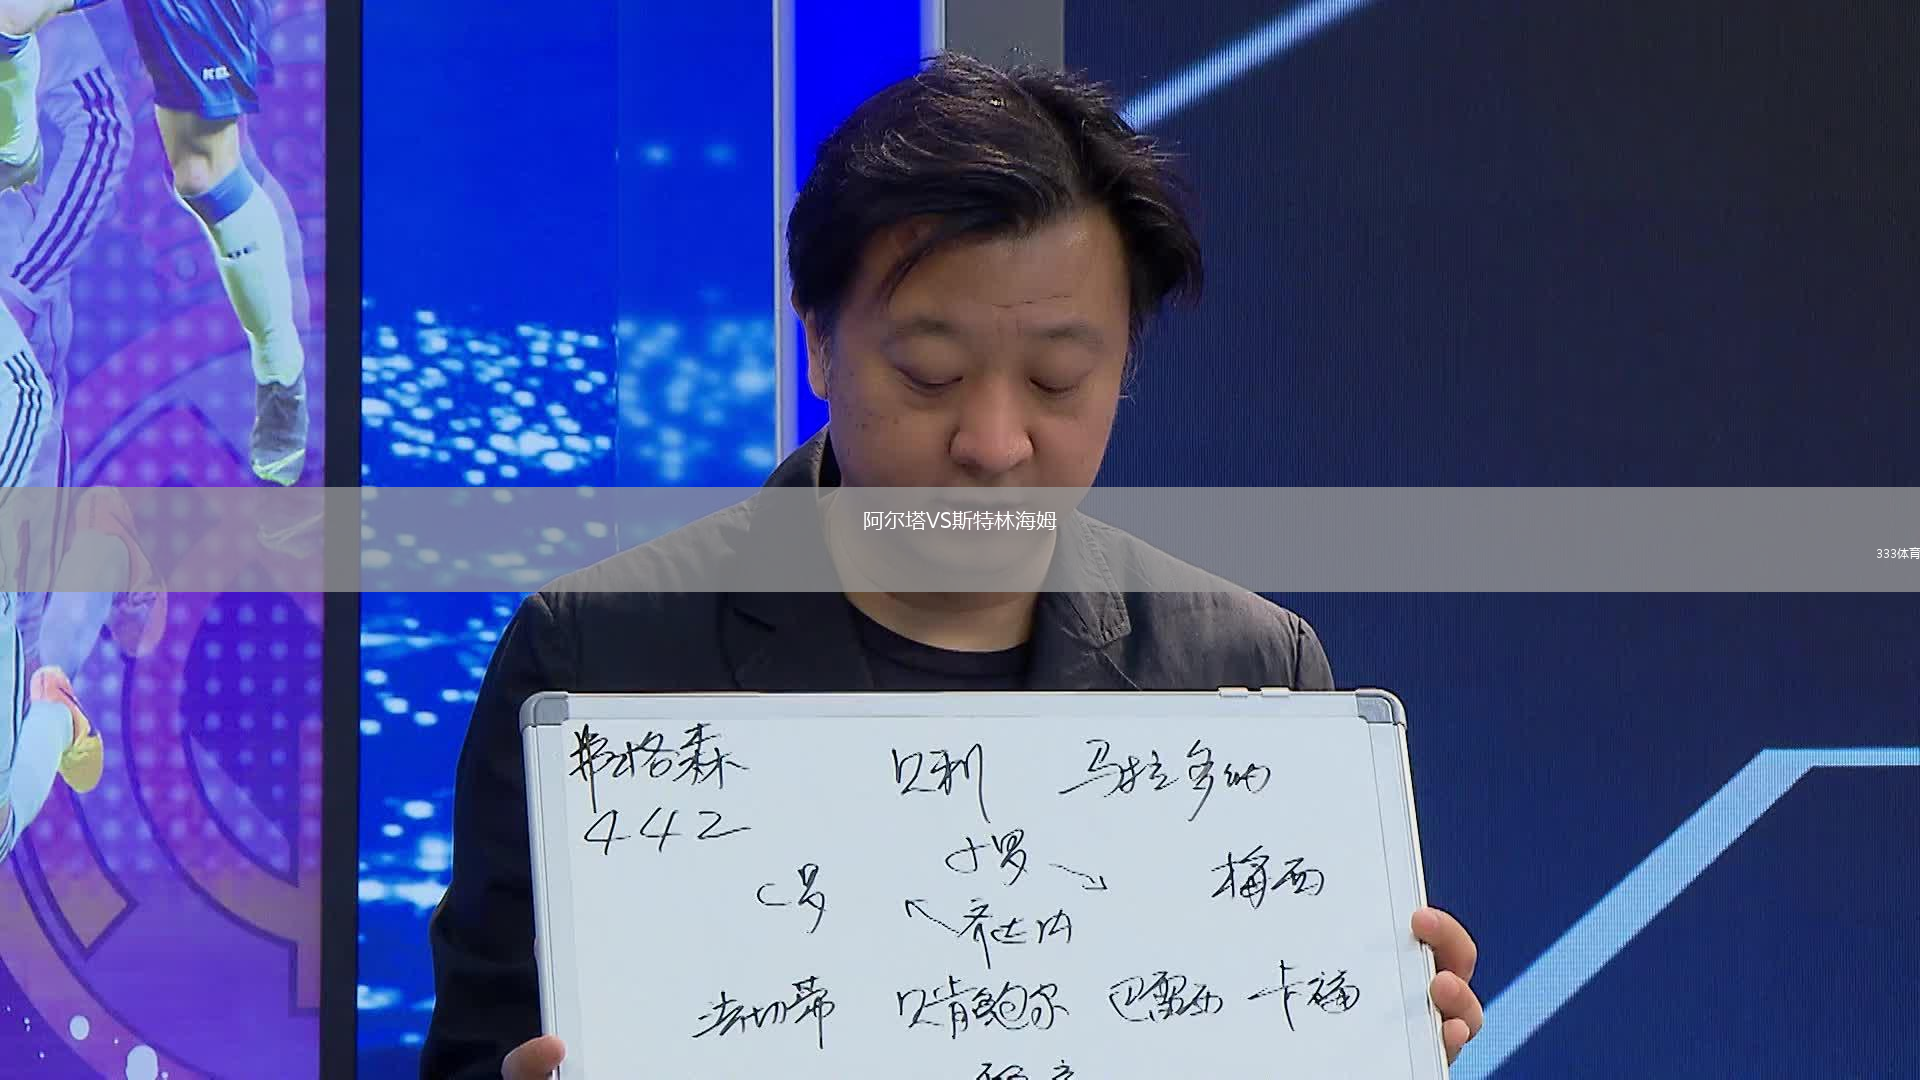 阿尔塔VS斯特林海姆
333体育
弗格森 贝利 马拉多纳
442
小罗
C罗 梅西
齐达内
法切蒂 贝肯鲍尔 巴雷西 卡福